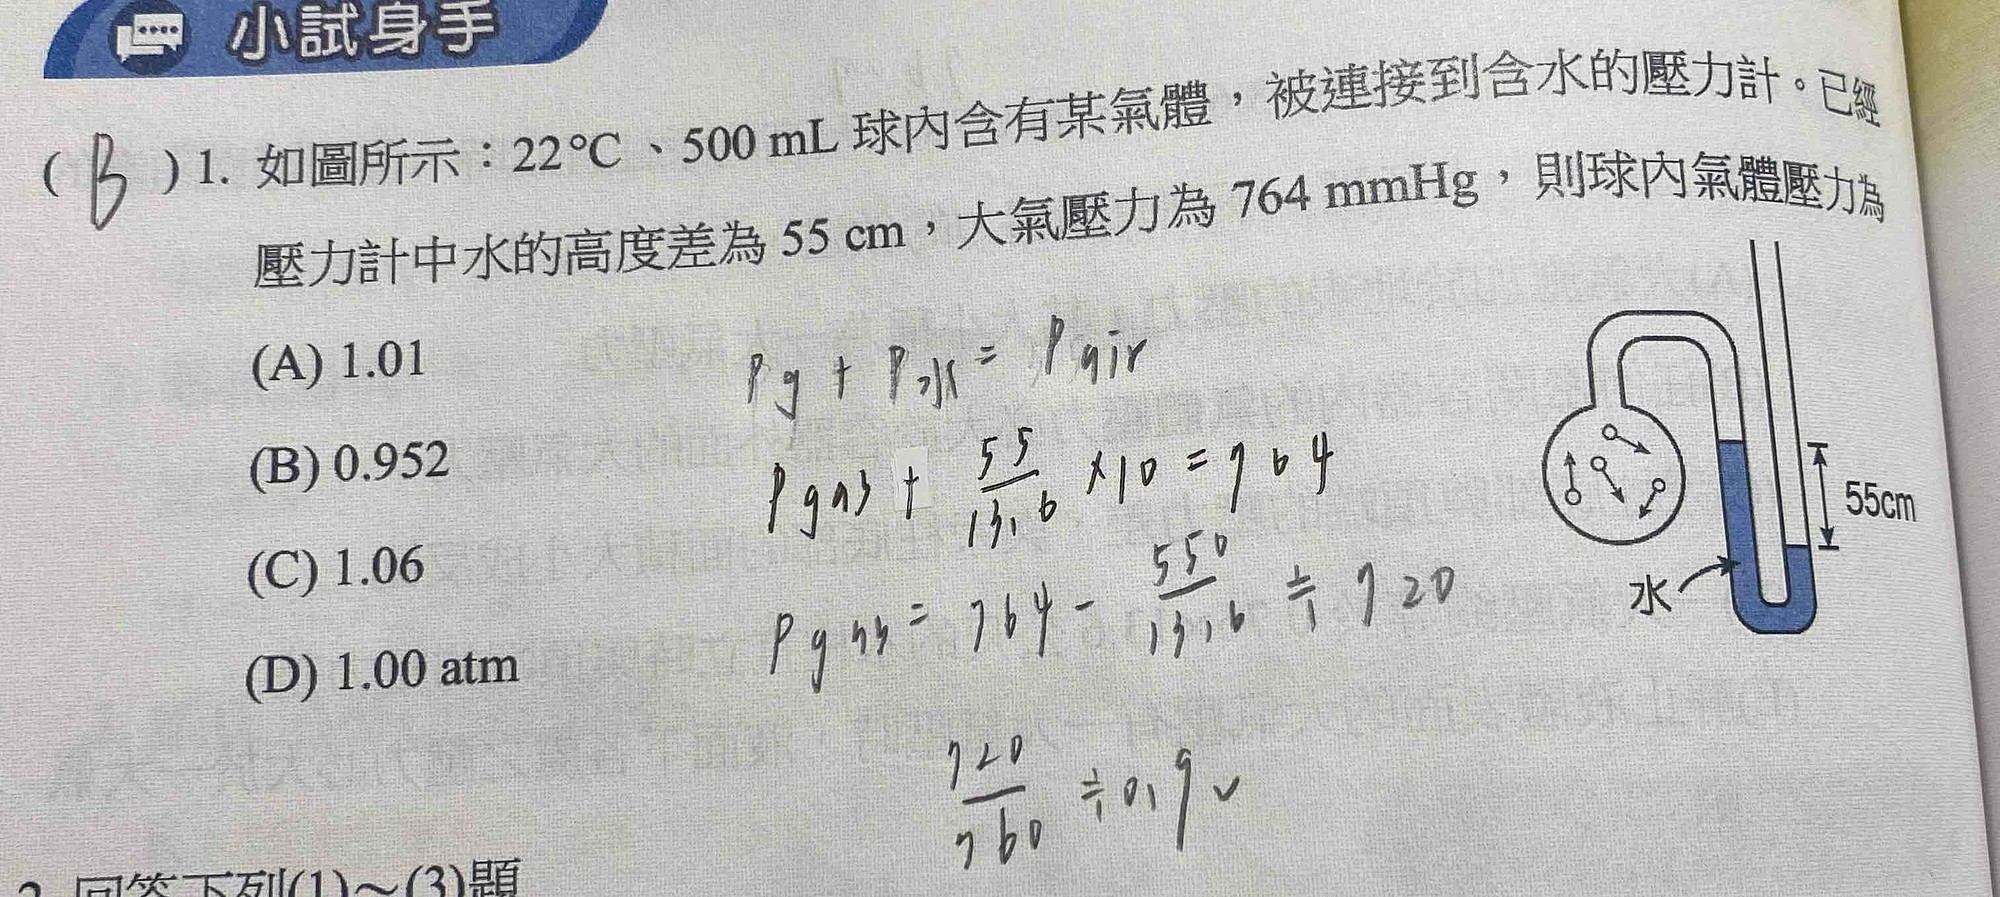 小試身手
( B ) 1. 如圖所示：22℃、500 mL 球內含有某氣體，被連接到含水的壓力計。已經
壓力計中水的高度差為 55 cm，大氣壓力為 764 mmHg，則球內氣體壓力為
(A) 1.01
(B) 0.952
(C) 1.06
(D) 1.00 atm
Pg + P水 = Pair
Pgas + 55/13.6 ×10 = 764
Pgas = 764 - 550/13.6 ≒ 720
720/760 ≒ 0.9
55cm
水
回答下列(1)～(3)題